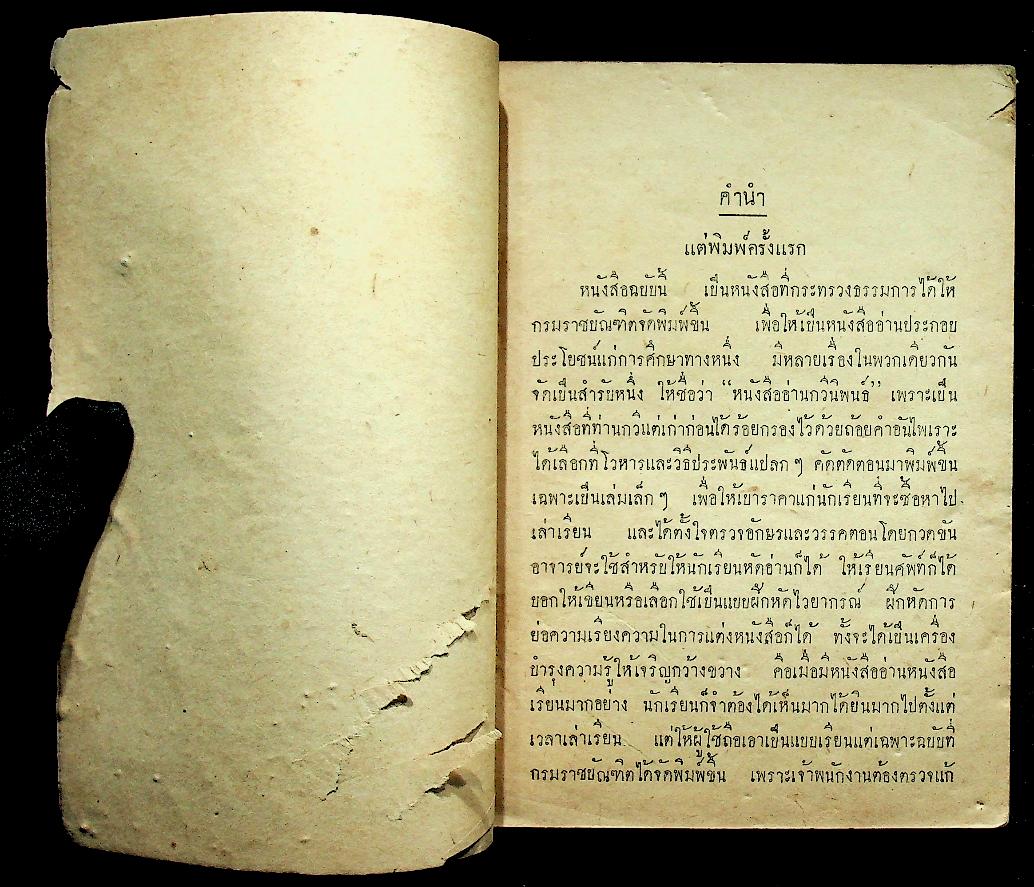 คำนำ
แต่พิมพ์ครั้งแรก
หนังสือฉบับนี้ เป็นหนังสือที่กระทรวงธรรมการได้ให้
กรมราชบัณฑิตจัดพิมพ์ขึ้น เพื่อให้เป็นหนังสืออ่านประกอบ
ประโยชน์แก่การศึกษาทางหนึ่ง มีหลายเรื่องในพวกเดียวกัน
จัดเป็นสำรับหนึ่ง ให้ชื่อว่า “หนังสืออ่านกวีนิพนธ์” เพราะเป็น
หนังสือที่ท่านกวีแต่เก่าก่อนได้ร้อยกรองไว้ด้วยถ้อยคำอันไพเราะ
ได้เลือกที่โวหารและวิธีประพันธ์แปลก ๆ คัดตัดตอนมาพิมพ์ขึ้น
เฉพาะเป็นเล่มเล็ก ๆ เพื่อให้เบาราคาแก่นักเรียนที่จะซื้อหาไป
เล่าเรียน และได้ตั้งใจตรวจอักษรและวรรคตอนโดยกวดขัน
อาจารย์จะใช้สำหรับให้นักเรียนหัดอ่านก็ได้ ให้เรียนศัพท์ก็ได้
บอกให้เขียนหรือเลือกใช้เป็นแบบฝึกหัดไวยากรณ์ ฝึกหัดการ
ย่อความเรียงความในการแต่งหนังสือก็ได้ ทั้งจะได้เป็นเครื่อง
บำรุงความรู้ให้เจริญกว้างขวาง คือเมื่อมีหนังสืออ่านหนังสือ
เรียนมากอย่าง นักเรียนก็จำต้องได้เห็นมากได้ยินมากไปตั้งแต่
เวลาเล่าเรียน แต่ให้ผู้ใช้ถือเอาเป็นแบบเรียนแต่เฉพาะฉบับที่
กรมราชบัณฑิตได้จัดพิมพ์ขึ้น เพราะเจ้าพนักงานต้องตรวจแก้